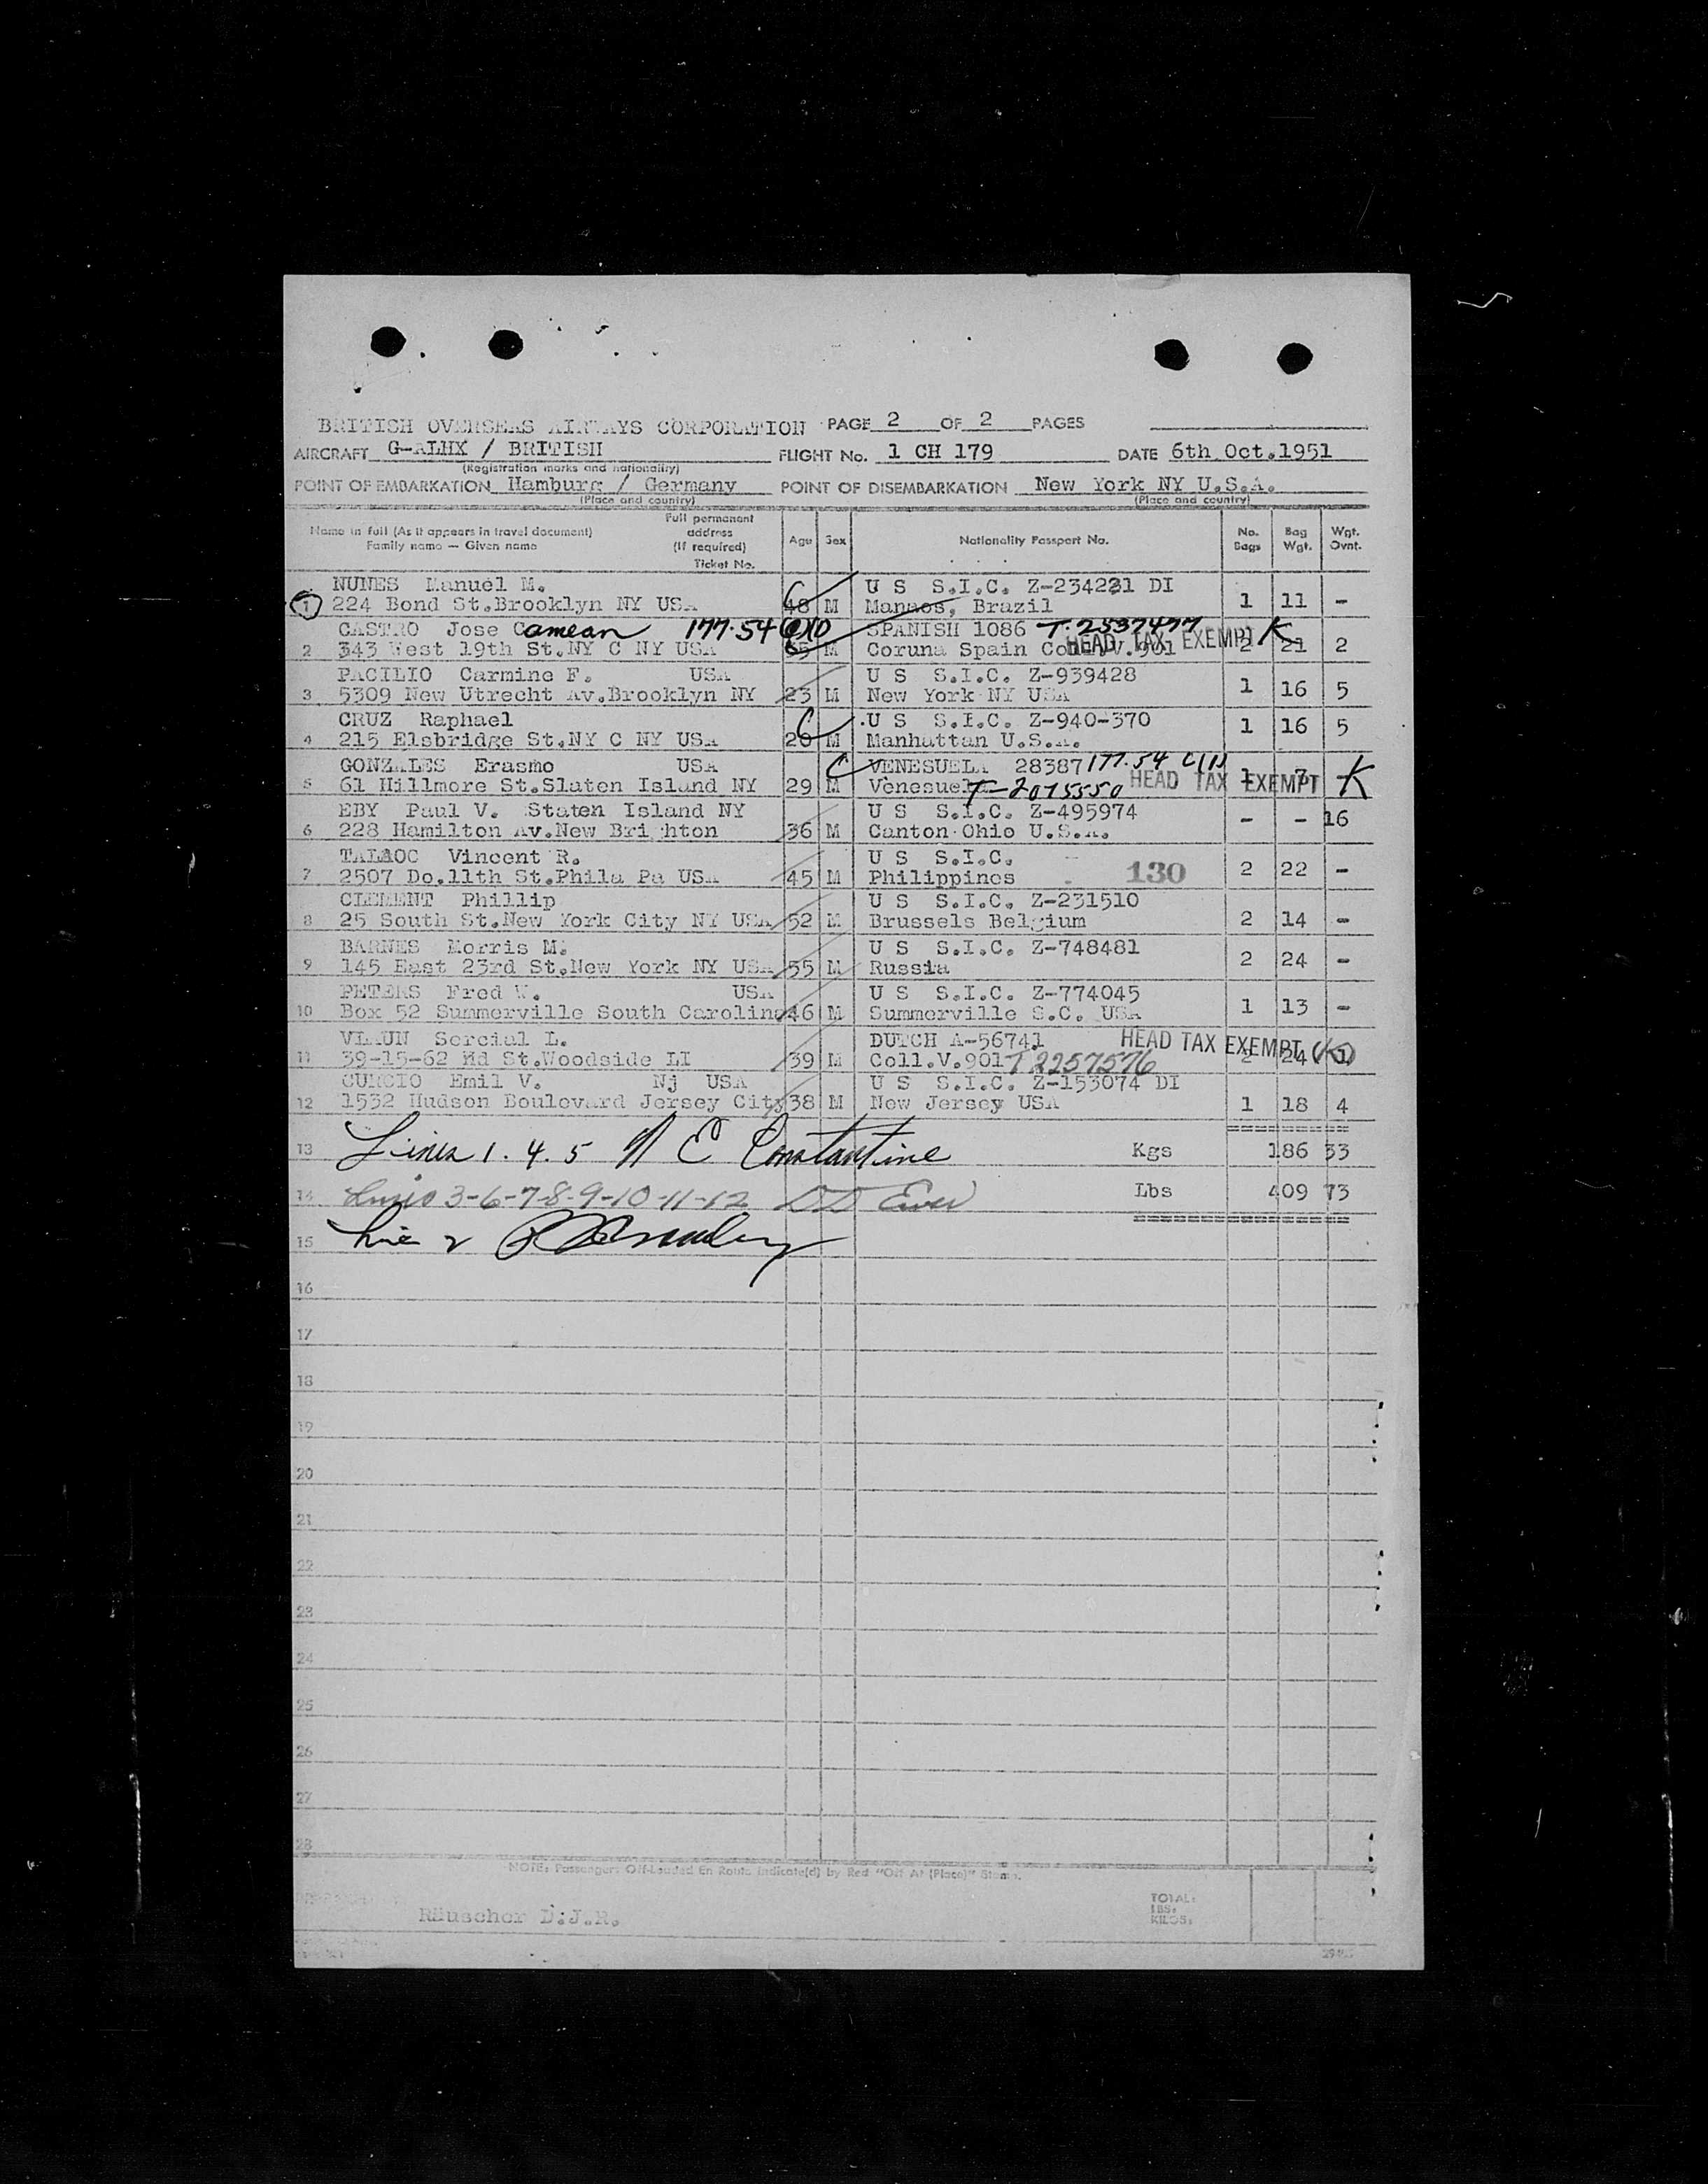 BRITISH OVERSEAS AIRWAYS CORPORATION PAGE 2 OF 2 PAGES
AIRCRAFT G-ALHX / BRITISH FLIGHT No. 1 CH 179 DATE 6th Oct.1951
(Registration marks and nationality)
POINT OF EMBARKATION Hamburg / Germany POINT OF DISEMBARKATION New York NY U.S.A.
(Place and country) (Place and country)
Name in full (As it appears in travel document) Family name — Given name Full permanent address (If required) Ticket No. Age Sex Nationality Passport No. No. Bags Bag Wgt. Wgt. Ovnt.
NUNES Manuel M. U S S.I.C. Z-234221 DI
1 224 Bond St.Brooklyn NY USA 48 M Manaos, Brazil 1 11 -
CASTRO Jose Camean 177.54 SPANISH 1086 T-2537477
2 343 West 19th St.NY C NY USA 35 M Coruna Spain Coll.V.901 HEAD TAX EXEMPT K 2 21 2
PACILIO Carmine F. USA U S S.I.C. Z-939428
3 5309 New Utrecht Av.Brooklyn NY 23 M New York NY USA 1 16 5
CRUZ Raphael C U S S.I.C. Z-940-370
4 215 Elsbridge St.NY C NY USA 20 M Manhattan U.S.A. 1 16 5
GONZALES Erasmo USA C VENESUELA 28387 177.54
5 61 Hillmore St.Slaten Island NY 29 M Venesuela T-2075550 HEAD TAX EXEMPT 1 7 - K
EBY Paul V. Staten Island NY U S S.I.C. Z-495974
6 228 Hamilton Av.New Brighton 36 M Canton Ohio U.S.A. - - 16
TALAOC Vincent R. U S S.I.C.
7 2507 Do.11th St.Phila Pa USA 45 M Philippines 130 2 22 -
CLEMENT Phillip U S S.I.C. Z-231510
8 25 South St.New York City NY USA 52 M Brussels Belgium 2 14 -
BARNES Morris M. U S S.I.C. Z-748481
9 145 East 23rd St.New York NY USA 55 M Russia 2 24 -
PETERS Fred W. USA U S S.I.C. Z-774045
10 Box 52 Summerville South Carolina 46 M Summerville S.C. USA 1 13 -
VLAUN Sercial L. DUTCH A-56741 HEAD TAX EXEMPT K
11 39-15-62 Rd St.Woodside LI 39 M Coll.V.901 T2257576 2 24 1
CURCIO Emil V. Nj USA U S S.I.C. Z-153074 DI
12 1532 Hudson Boulevard Jersey City 38 M New Jersey USA 1 18 4
13 Lines 1. 4. 5 N C Constantine Kgs 186 33
14 Lines 3-6-7-8-9-10-11-12 Lbs 409 73
15 Line 2
16
17
18
19
20
21
22
23
24
25
26
27
28
NOTE: Passengers Off-Loaded En Route Indicate(d) by Red "Off At (Place)" Stamp.
Räuscher D.J.R.
TOTAL:
LBS:
KILOS: